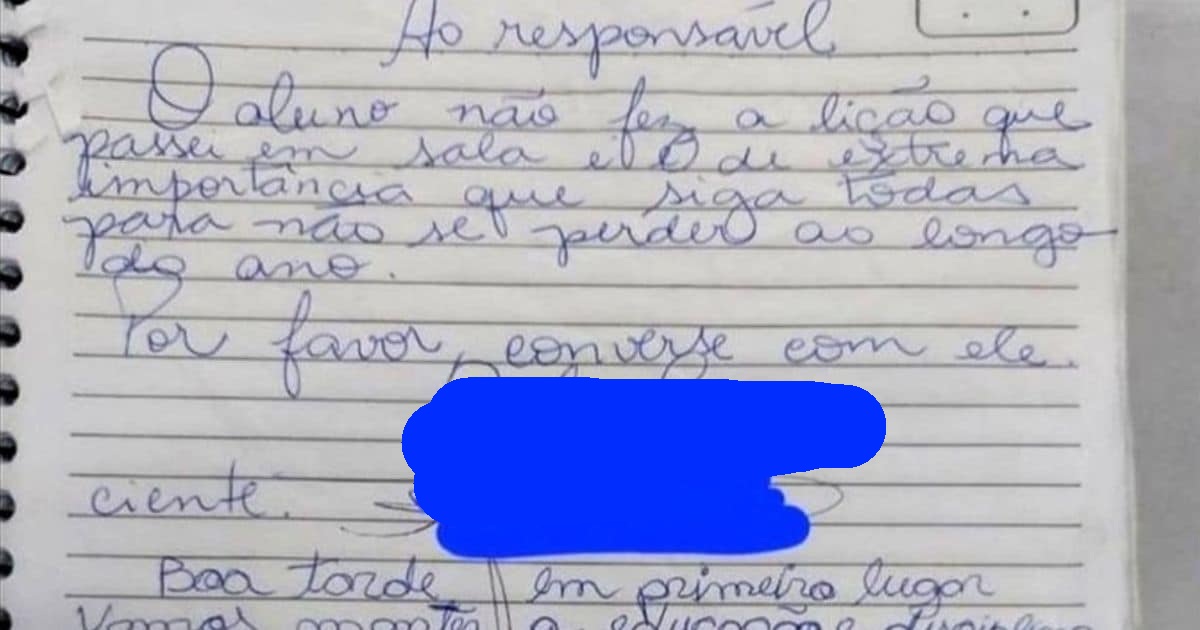 Ao responsável
O aluno não fez a lição que
passei em sala e é de extrema
importância que siga todas
para não se perder ao longo
do ano.
Por favor, converse com ele.
ciente.
Boa tarde, em primeiro lugar
Vamos manter a educação e disciplina